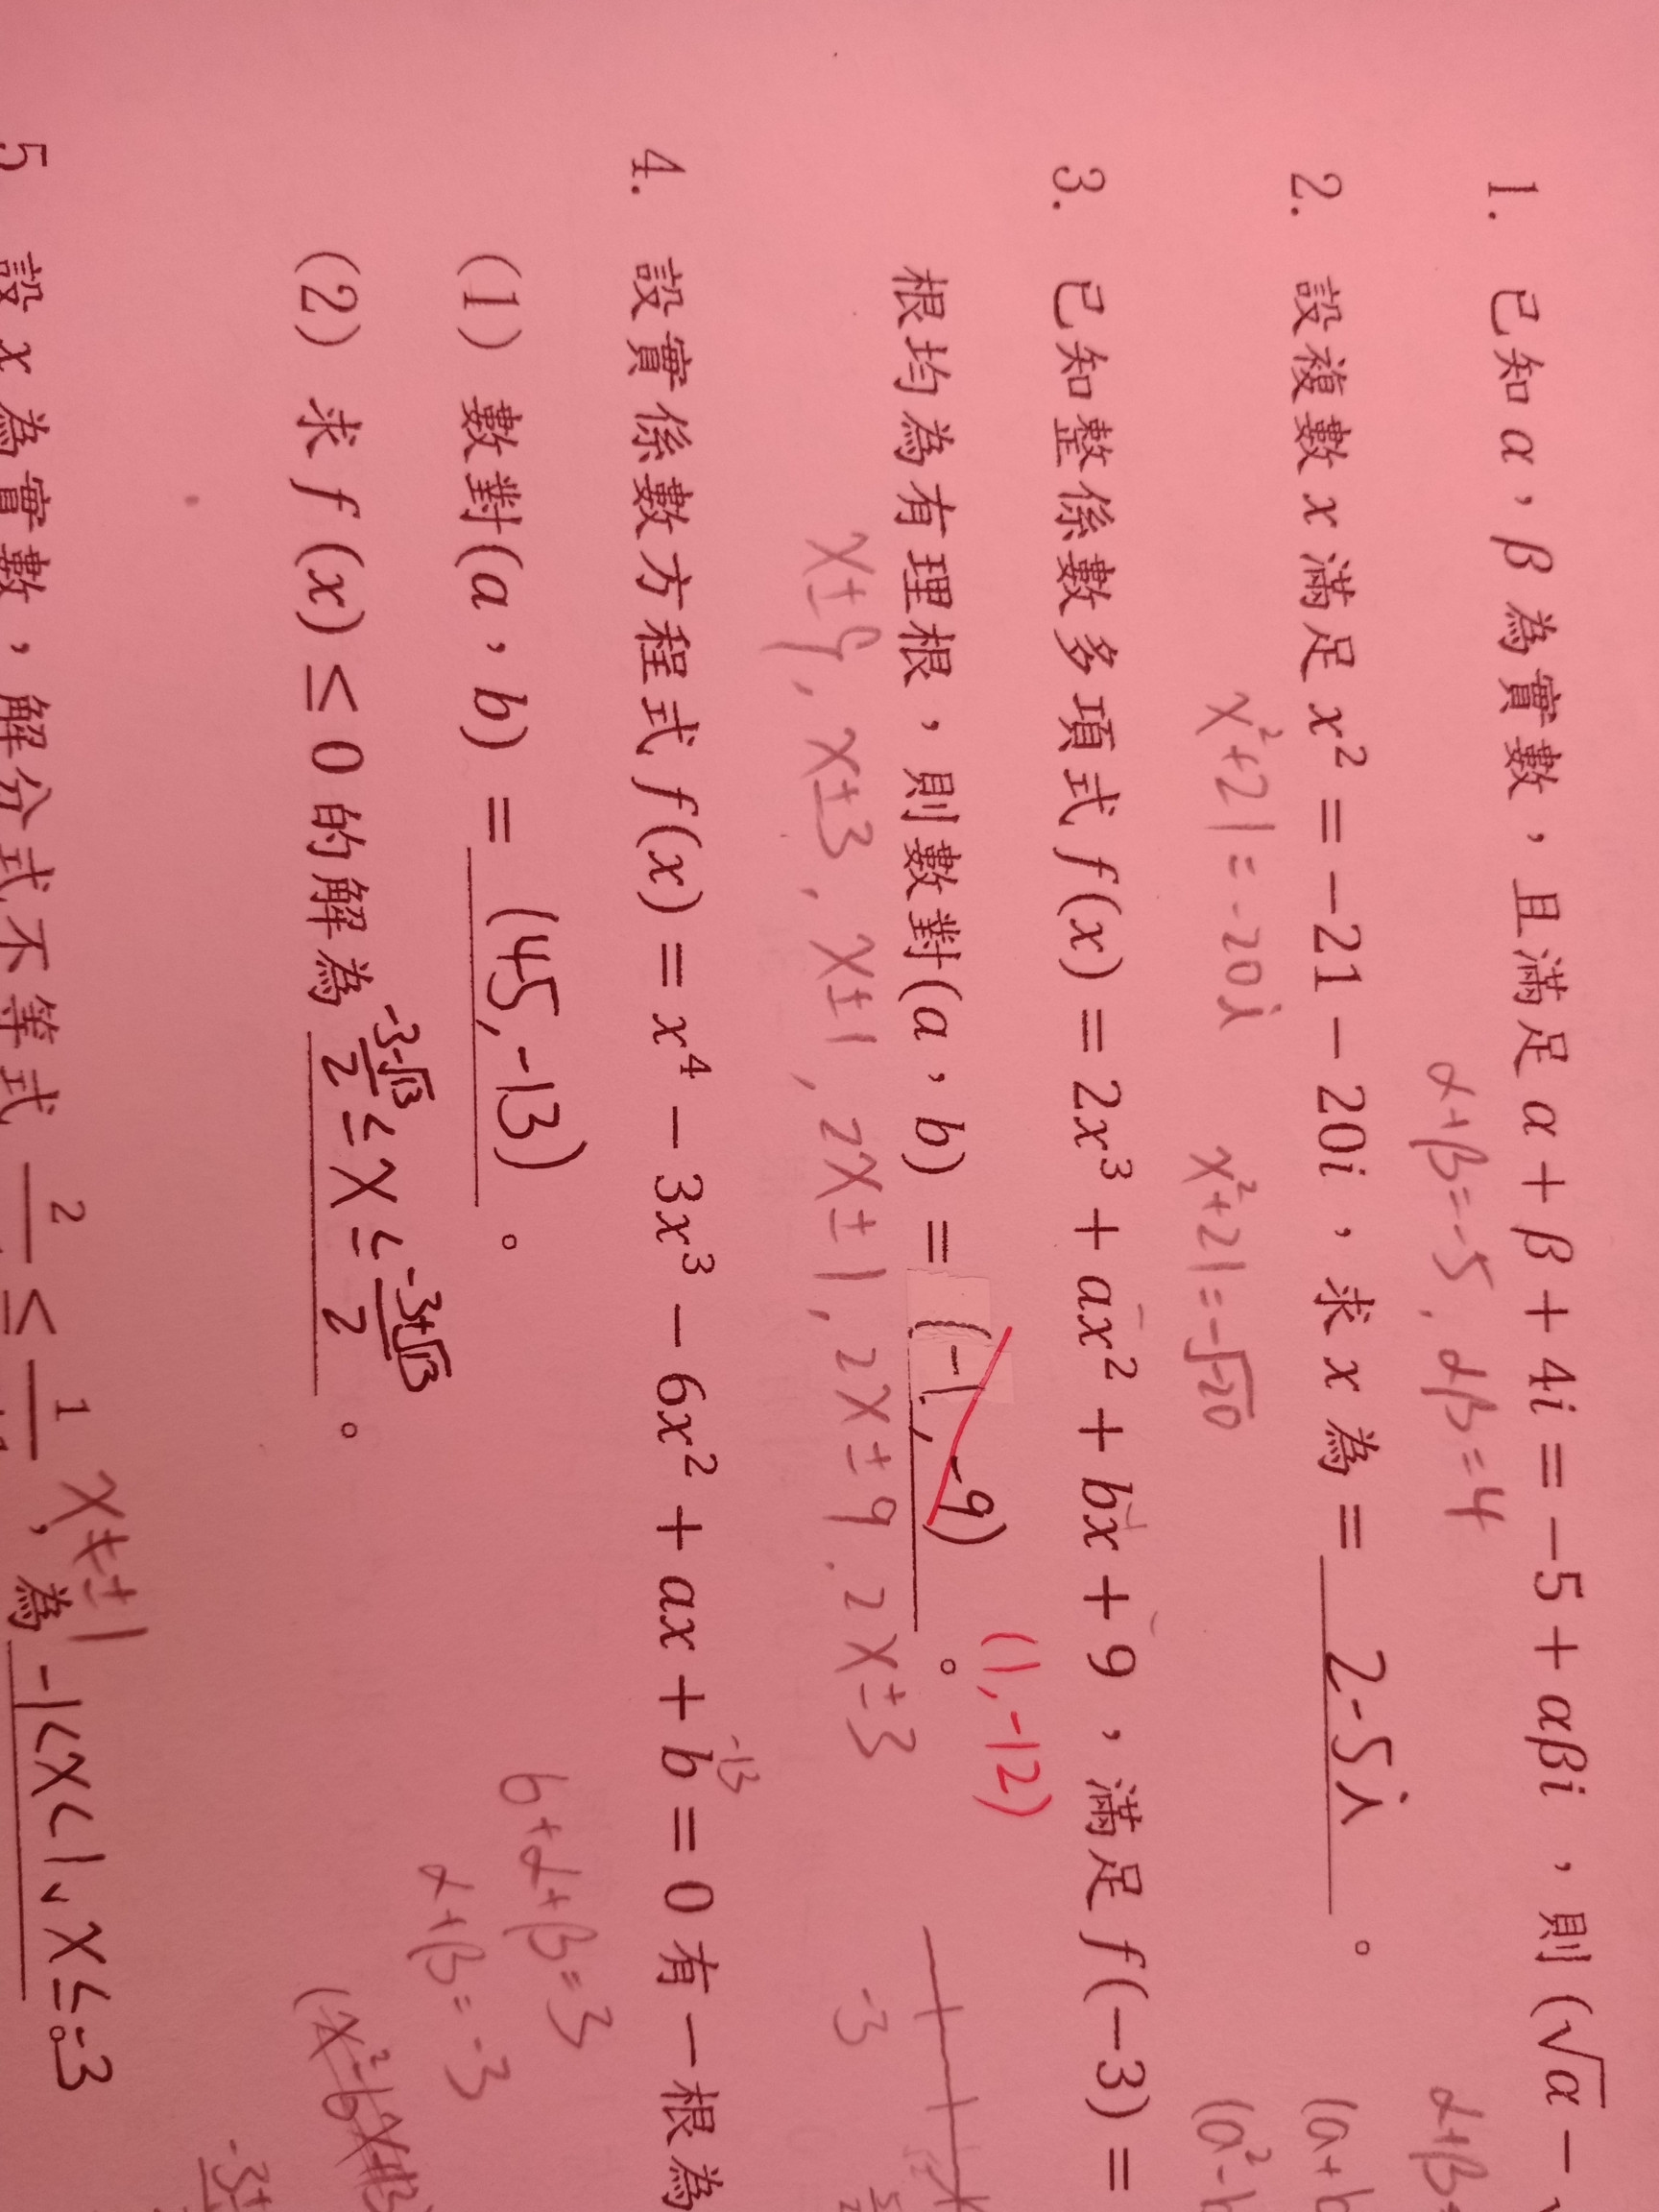 1. 已知 α，β 為實數，且滿足 α + β + 4i = −5 + αβi，則 (√α −
α+β=-5, αβ=4
α+β
2. 設複數 x 滿足 x² = −21 − 20i，求 x 為 = 2-5i 。
(a+b
x²+21=-20i
x²+21=-√-20
(a²-b
3. 已知整係數多項式 f(x) = 2x³ + ax² + bx + 9，滿足 f(−3) =
(1,-12)
根均為有理根，則數對(a，b) = (-1,-9) 。
x±9, x±3, x±1, 2x±1, 2x±9, 2x±3
-3
4. 設實係數方程式 f(x) = x⁴ − 3x³ − 6x² + ax + b = 0 有一根為
-13
6+α+β=3
(1) 數對(a，b) = (45,-13) 。
α+β=-3
(2) 求 f(x) ≤ 0 的解為 (-3-√13)/2 ≤ x ≤ (-3+√13)/2 。
x±1
5 設 x 為實數，解分式不等式 2 ≤ 1 為 -1<x<1, x≤-3 。